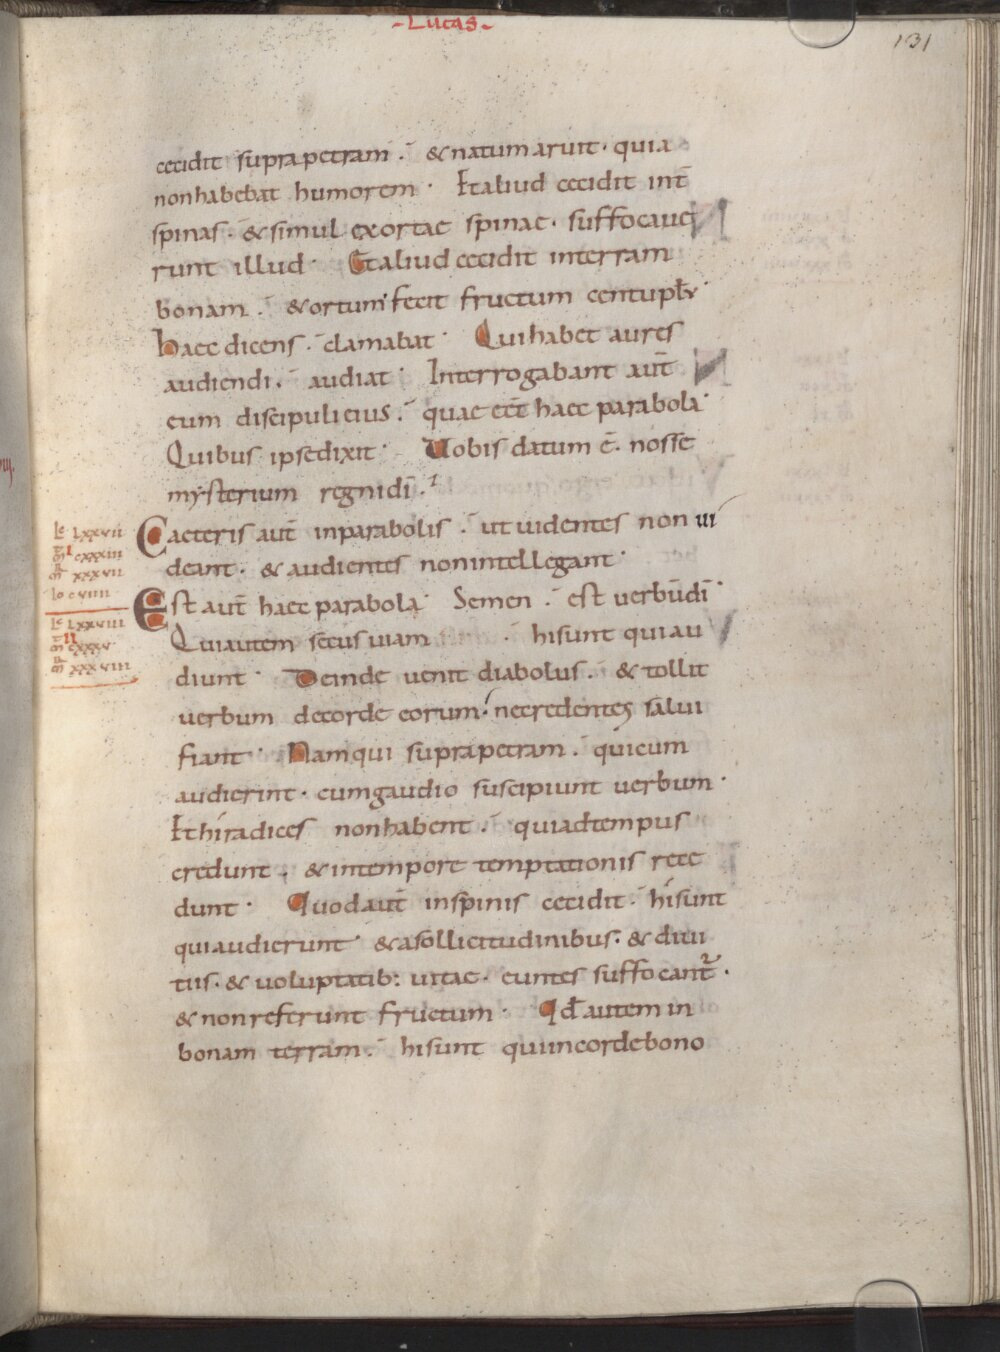 -Lucas-
131
cecidit suprapetram . & natum aruit · quia
nonhabebat humorem · Et aliud cecidit int̄
spinas · & simul exortae spinae · suffocaue
runt illud · Et aliud cecidit interram
bonam . & ortum fecit fructum centuplū ·
haec dicens . clamabat · Qui habet aures
audiendi . audiat · Interrogabant aut̄
eum discipuli eius . quae eēt haec parabola ·
Quibus ipse dixit · Uobis datum ē · nosse
mysterium regni dī .
Caeteris aut̄ inparabolis . ut uidentes non ui
deant · & audientes nonintellegant ·
Est aut̄ haec parabola · Semen . est uerbūdī ·
Qui autem secus uiam . hi sunt qui au
diunt · Deinde uenit diabolus . & tollit
uerbum decorde eorum · necredentes salui
fiant · Nam qui suprapetram . qui cum
audierint · cumgaudio suscipiunt uerbum ·
Et hi radices nonhabent . qui adtempus
credunt . & intempore temptationis rece
dunt · Quod aut̄ inspinis cecidit · hi sunt
qui audierunt · & asollicitudinibus · & diui
tiis · & uoluptatib: uitae · euntes suffocant᷑ ·
& nonreferunt fructum · Qd̄ autem in
bonam terram . hi sunt qui incordebono
lc LXXVII
mt CXXXIII
mr XXXVII
io CVIIII
lc LXXVIII
II
mt CXXXV
mr XXXVIII